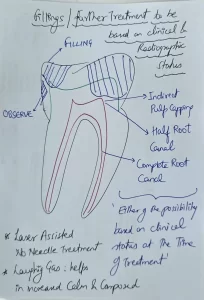 Fillings / further Treatment to be
based on clinical &
Radiographic
Status
FILLING
OBSERVE
Indirect
Pulp Capping
Half Root
Canal
Complete Root
Canal
'Either of the possibility
based on clinical
status at the Time
of Treatment'
* Laser Assisted
No Needle Treatment
* Laughing Gas : helps
in increased Calm & Composed